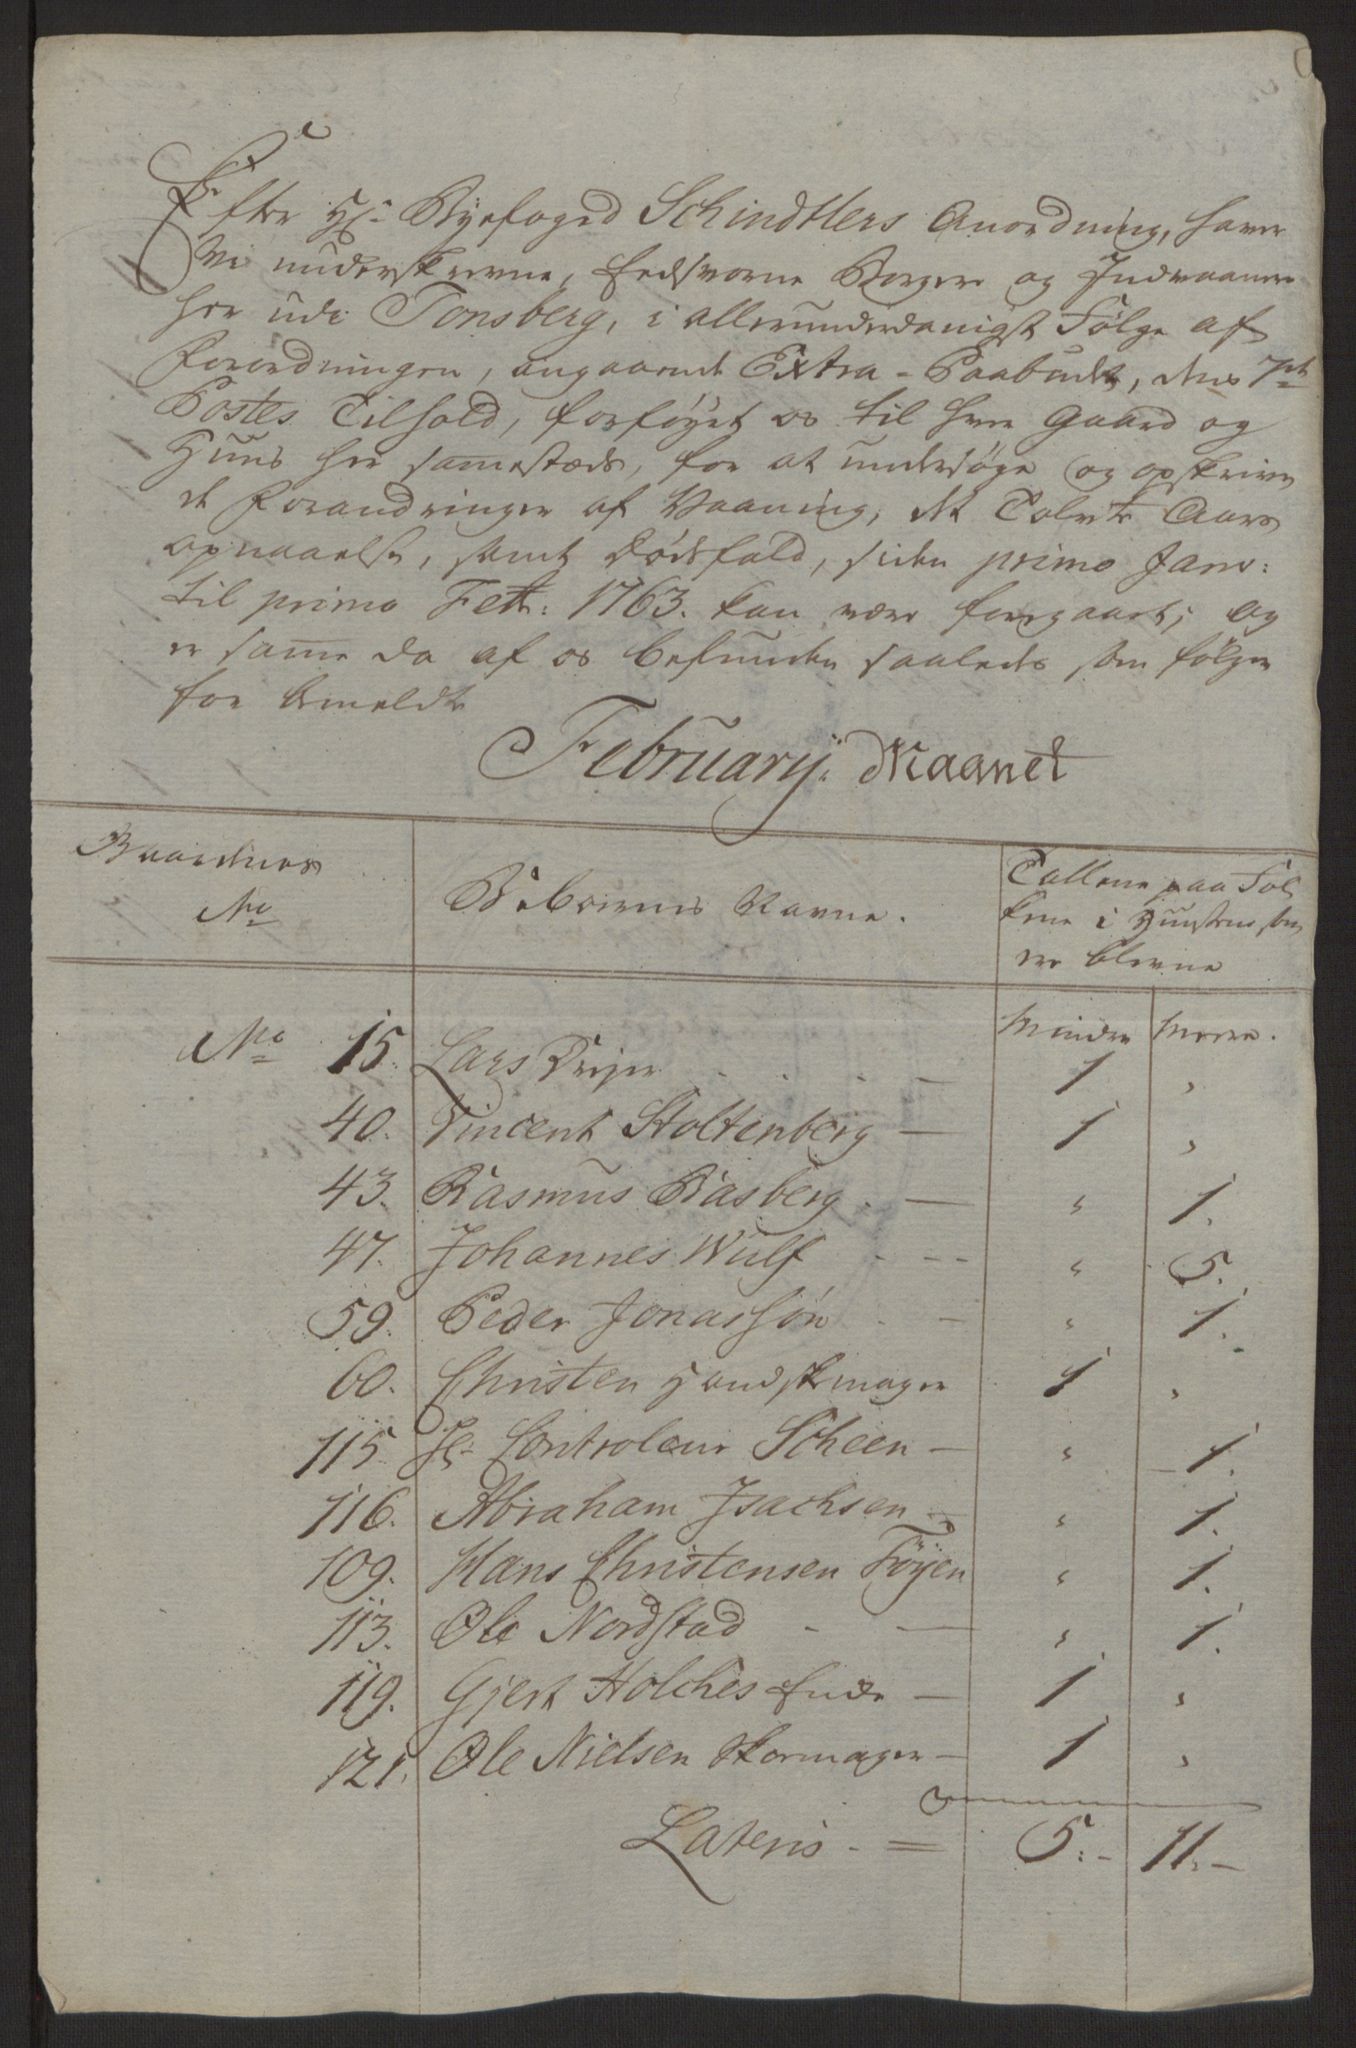 Efter Hr. Byefoged Schindtlers Anordning, haver
Vi underskrevne, Eedsvorne Borgere og Indvaanere
her udi Tonsberg, i allerunderdanigst Følge af
Forordningen, angaaende Extra-Paabudet, dens 7de
Postes Tilhold, forføyet os til hver Gaard og
Huus her sammestæds, for at undersøge og opskrive
de Forandringer af Vaaning, det Tolvte Aars
opnaaelse, samt Dødsfald, siden primo Janv:
til primo Febr: 1763. kan være foregaaet; og
er samme da af os befunden saaledes som følger
for Anmeldt
Februarij Maanet
Gaardenes No
Beboernes Navne.
Tallene paa Fol
kene i Huusene som
ere blevne
Mindre Meere.
No 15. Lars Dreyer . . . — 1 "
40. Vincent Stoltenberg — 1 "
43. Rasmus Basberg. — " 1.
47. Johannes Wulf - - - " 5.
59. Peder Jonassøn - — " 1.
60. Christen Handskemager 1 "
115. Hr. Controleur Scheen — " 1.
116. Abraham Isachsen — " 1.
109. Hans Christensen Føyen " 1.
113. Ole Nordstad - — " 1.
119. Gjert Holches Enke — 1 "
121. Ole Nielsen Skomager — 1 "
Lateris - = 5:- 11:-